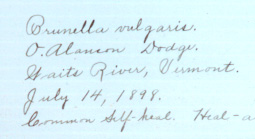 Prunella vulgaris.
O. Alanson Dodge.
Waits River, Vermont.
July 14, 1898.
Common Self-heal. Heal-a